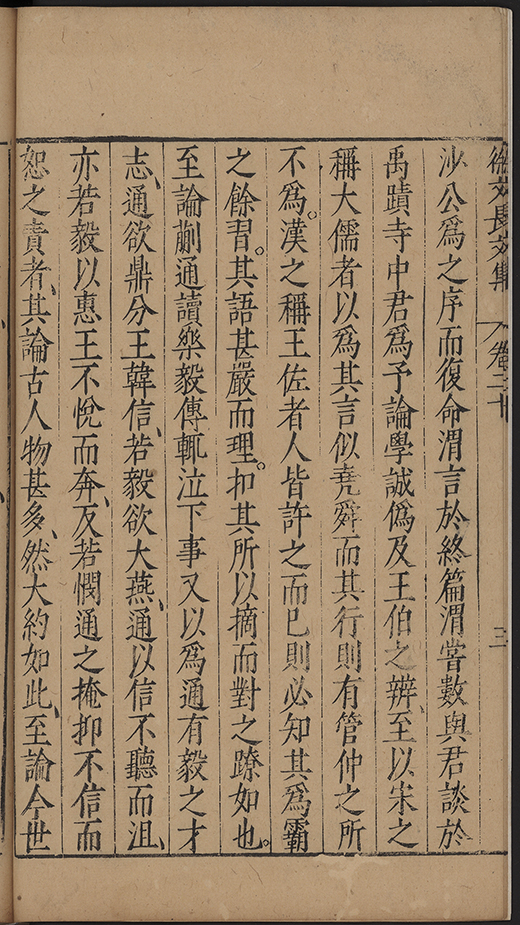 徐文長文集　卷二十　三
沙公爲之序而復命渭言於終篇渭嘗數與君談於
禹蹟寺中君爲予論學誠僞及王伯之辨、至以宋之
稱大儒者以爲其言似堯舜而其行則有管仲之所
不爲。漢之稱王佐者人皆許之而已則必知其爲霸
之餘習。其語甚嚴而理。扣其所以摘而對之瞭如也。
至論蒯通讀樂毅傳輒泣下事又以爲通有毅之才
志、通欲鼎分王韓信、若毅欲大燕、通以信不聽而沮、
亦若毅以惠王不悅而奔、反若憫通之掩抑不信而
恕之責者、其論古人物甚多、然大約如此、至論今世